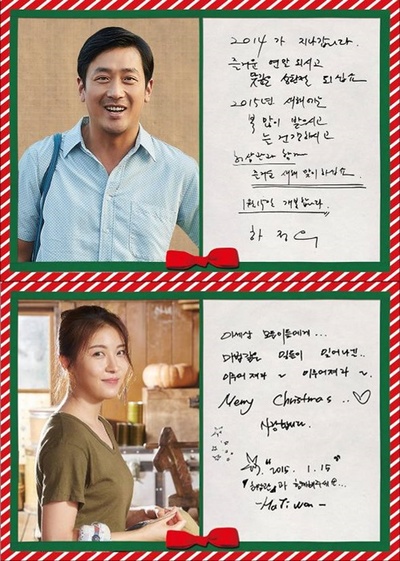 2014가 지나갑니다.
즐거운 연말 되시고
뜻깊은 성탄절 되십쇼
2015년 새해에도
복 많이 받으시고
늘 건강하시고
허삼관과 함께
새해 맞이하십쇼.
1월 15일 개봉합니다.
하정우
이세상 모든이들에게...
마법같은 일들이 일어나길..
이루어져라 ~ 이루어져라 ~
Merry Christmas ..♡
사랑합니다.
2015. 1. 15
"허삼관"과 함께해주세요...
-Ha Ji won-